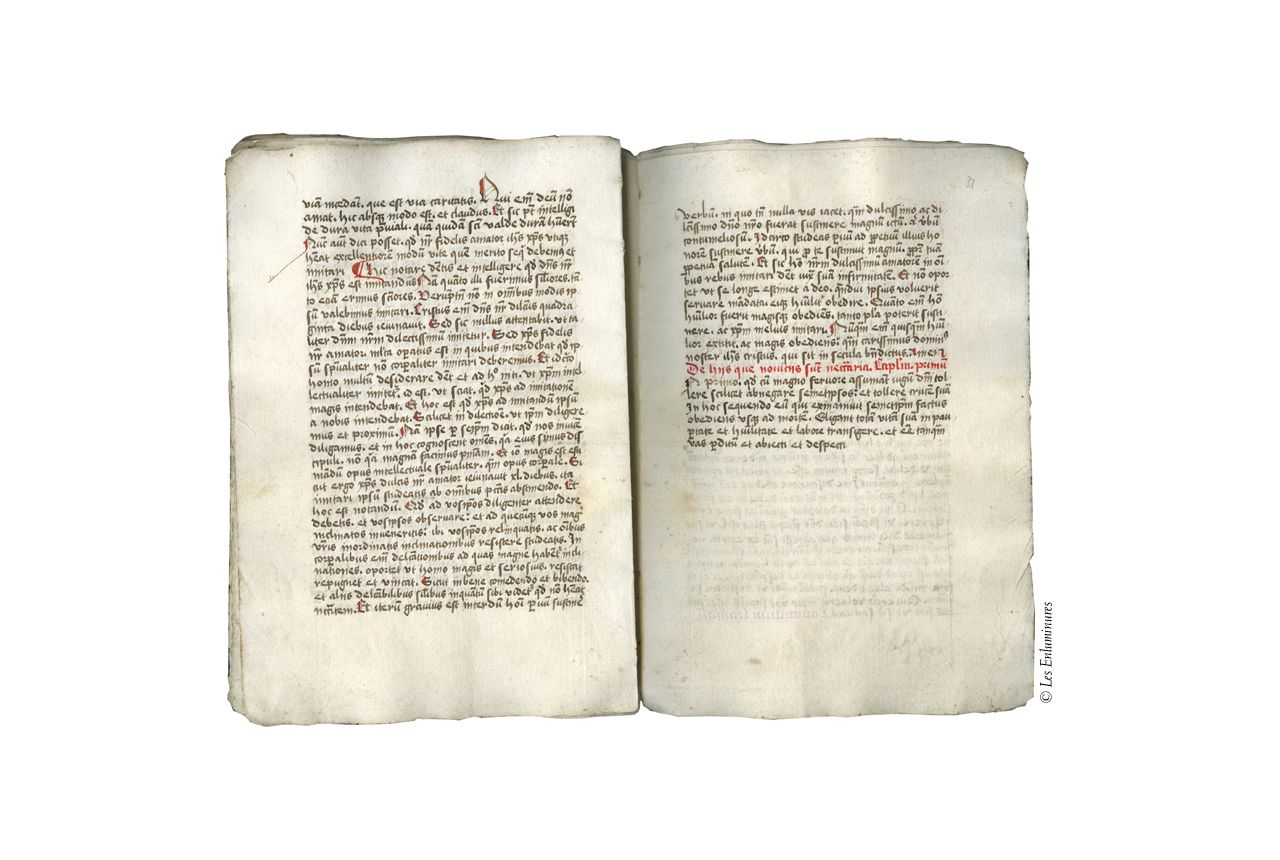 viā incedāt. que est via caritatis. Qui em̄ deū nō
amat. hic absqꝫ modo est. et claudus. Et sic pt̄ intelligi
de dura vita sp̄uali. quā quidā sc̄i valde durā hūert̄
Nūc aūt dici posset. qd nr̄ fidelis amator ihs xp̄s utiqꝫ
excellentiorē modū vite quē merito seqͥ debemꝰ et
imitari Hic notare det̄is et intelligere qd dn̄s nr̄
ihs xp̄s est imitandus Nā quāto illi fuerimus siliores. tā
to eciā erimus sc̄iores. Verūptn̄ nō in om̄ibus modis ip
sū valebimus imitari. Cristus em̄ dn̄s nr̄ dilc̄us quadra
ginta diebus ieiunavit. Sed sic nullus attentabit. ut ta
liter dn̄m nr̄m dilectissimū imitetur. Sed xp̄s fidelis
nr̄ amator mlta opatus est in quibus intendebat qd ip
sū sp̄ualiter nō corpaliter imitari deberemus. Et idcc̄o
homo multū desiderare det̄ et ad hͦ niti. vt xp̄m intel
lectualiter imitet̄. id est. vt sciat. qd xp̄s ad imitationē
magis intendebat. Et hoc est qd xp̄s ad imitandū ipsū
a nobis intendebat. Scilicet in dilectiōe. vt ip̄m diligere
mus et proximū. Nā ipse p seip̄m dicit. qd nos invicē
diligamus. et in hoc cognoscent omēs. qͣ eius sumus dis
cipuli. nō qͣ magnā facimus pnīam. Et iō magis est esti
mādū opus intellectuale sp̄ualiter. qͣm opus corpale. Si
cut ergo xp̄s dulcis nr̄ amator ieiunavit xl diebus. ita
imitari ipsū studeatis ab om̄ibus pctīs abstinendo. Et
hoc est notandū. Qd ad vosip̄os diligenter attendere
debetis. et vosipsos observare: et ad quecūqꝫ vos maḡ
inclinatos inveneritis: ibi vosip̄os relinquatis. ac oībus
vr̄is inordinatis inclinationibus resistere studeatis. In
corpalibus em̄ delc̄ationibus ad quas magne habet̄ incli
nationes. oportet vt homo magis et seriosius. resistat
repugnet et vincat. Sicut in bene comedendo et bibendo.
et aliis delc̄abilibus silibꝫ inquātū sibi videt̄ qd nō heat
nc̄c̄itatem. Et iterū gravius est interdū hoī pvū sustinē
verbū. in quo tn̄ nulla vis iacet. qͣm dulcissimo ac di
lc̄issimo dn̄o nr̄o fuerat sustinere magnū ictū. a verbū
contumeliosū. Idcirco studeas pvū ad ppetuū illius ho
norē sustinere vbū. qui p te sustinuit magnū. ppt̄ tuā
ppetuā salutē. Et sic hō nr̄m dulcissimū amatorē in oī
bus rebus imitari det̄ iux̄ suā infirmitatē. Et nō opor
tet ut se longe estimet a deo. qͣndiu ipsius voluerit
servare mādata. eiqꝫ hūilit̄ obedire. Quāto em̄ hō
hūilior fuerit magisqꝫ obediens. tanto pla poterit susti
nere. ac xp̄m melius imitari. Nūqͣm em̄ quisqͣm hūi
lior extitit. ac magis obediens: qͣm carissimus dominꝰ
noster ihs cristus. qui sit in secula bn̄dictus. Amen.
De hiis que noviciis sūt nec̄c̄aria. Caplm. primū
In primo. qd cū magno fervore assumāt iugū dn̄i tol
lere scilicet abnegare semetipsos: et tollere crucē suā
In hoc sequendo eū qui exinanivit semetip̄m factus
obediens usqꝫ ad mortē. Eligant totā vitā suā in pau
ptate et hūilitate et labore transigere. et eē tanqͣm
vas pditū et abiecti et despecti
31
© Les Enluminures